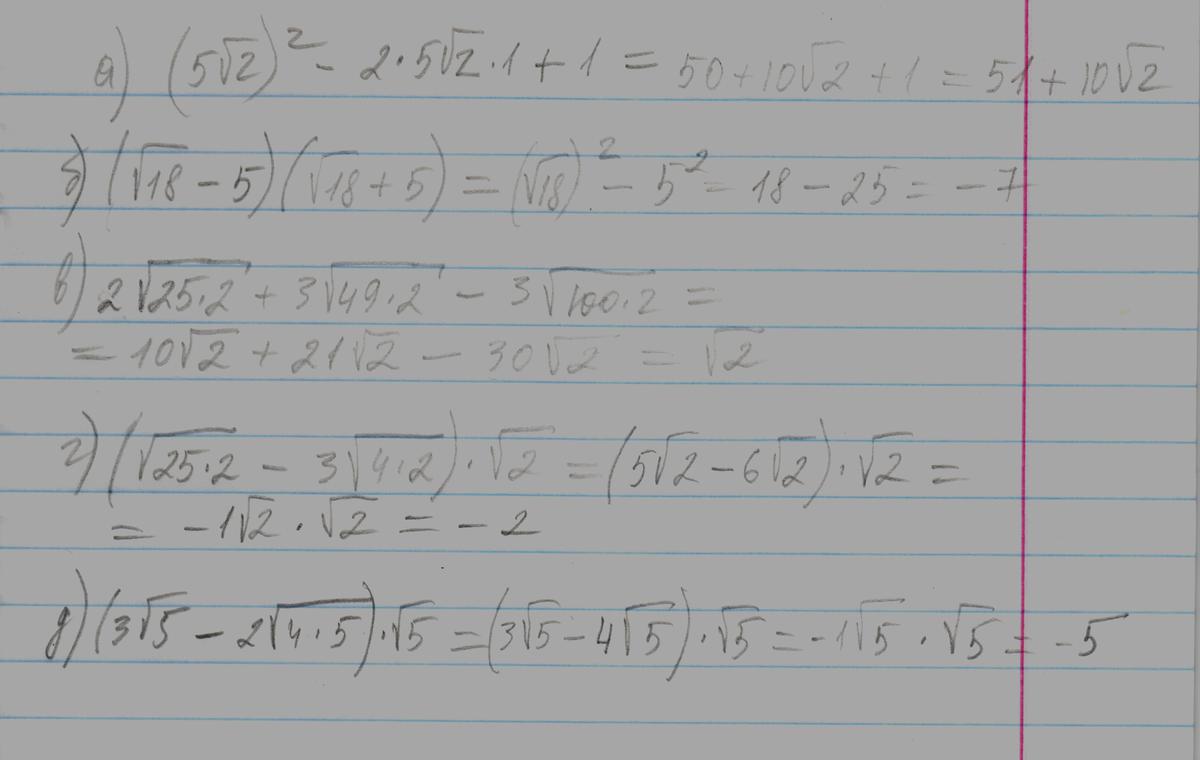 а) (5√2)² - 2·5√2·1 + 1 = 50 + 10√2 + 1 = 51 + 10√2
б) (√18 - 5)(√18 + 5) = (√18)² - 5² = 18 - 25 = -7
в) 2√25·2 + 3√49·2 - 3√100·2 =
= 10√2 + 21√2 - 30√2 = √2
г) (√25·2 - 3√4·2)·√2 = (5√2 - 6√2)·√2 =
= -1√2 · √2 = -2
д) (3√5 - 2√4·5)·√5 = (3√5 - 4√5)·√5 = -1√5 · √5 = -5